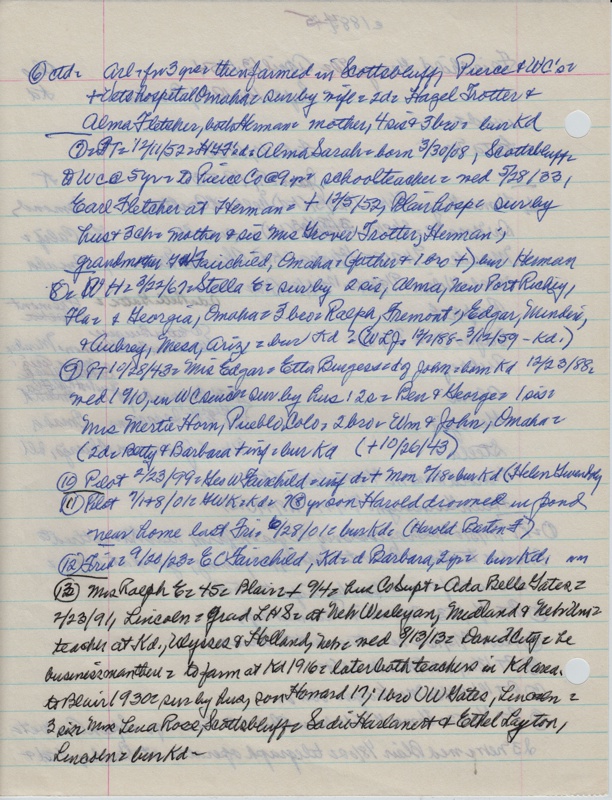 ⑥ ctd = Ariz = for 3 yrs = then farmed in Scottsbluff, Pierce & WC's =
+ Vets hospital Omaha = sur by wife = 2d = Hazel Trotter &
Alma Fletcher, both Herman = mother, 4 sis & 3 bro = bur Kd
⑦ = PT = 12/11/52 = d = Alma Sarah = born 3/30/08, Scottsbluff =
to WC @ 5 yr = to Pierce Co @ 9 yr = school teacher = wed 5/28/33,
Earl Fletcher at Herman = + 12/5/52, Blair hosp = sur by
hus & 3 ch = mother & sis Mrs Grover Trotter, Herman;
grandmother Fairchild, Omaha = (father & 1 bro +) bur Herman
8 = 9/22/67 = Stella E = sur by 2 sis, Alma, New Port Richey,
Fla = & Georgia, Omaha = 3 bro = Ralph, Fremont; Edgar, Minden,
& Aubrey, Mesa, Ariz = bur Kd = (WLJ = 12/2/88 - 3/12/59 - Kd.)
⑨ PT 10/28/43 = Mrs Edgar = Etta Burgess = dg John = born Kd 12/23/88 =
wed 1910, in WC since = sur by hus 1 2s = Ben & George = 1 sis =
Mrs Mertie Horn, Pueblo, Colo = 2 bro = Wm & John, Omaha =
(2d = Betty & Barbara + inf = bur Kd (+ 10/26/43)
⑩ Pilot 2/23/99 = Geo W Fairchild = inf d + Mon 2/18 = bur Kd (Helen
⑪ Pilot 7/4 & 8/01 = GWK = Kd = yr son Harold drowned in pond
near home last Fri. 6/28/01 = bur Kd = (Harold Barton F)
⑫ = 9/20/23 = EC Fairchild, Kd = d Barbara, 2 yr = bur Kd,
⑬ Mrs Ralph E = 45 = Blair + 9/4 = hus Co Supt = Ada Bells Yates =
2/23/91, Lincoln = grad LHS = at Neb Wesleyan, Midland & Neb Uni =
teacher at Kd, Ulysses & Holland, Neb = wed 8/13/13 = David City = he
business man there = to farm at Kd 1916 = later both teachers in Kd area.
to Blair 1930 = sur by hus, son Howard 17; 1 bro OW Yates, Lincoln =
3 sis Mrs Lena Rose, Scottsbluff = Sadie & Ethel Layton,
Lincoln = bur Kd -